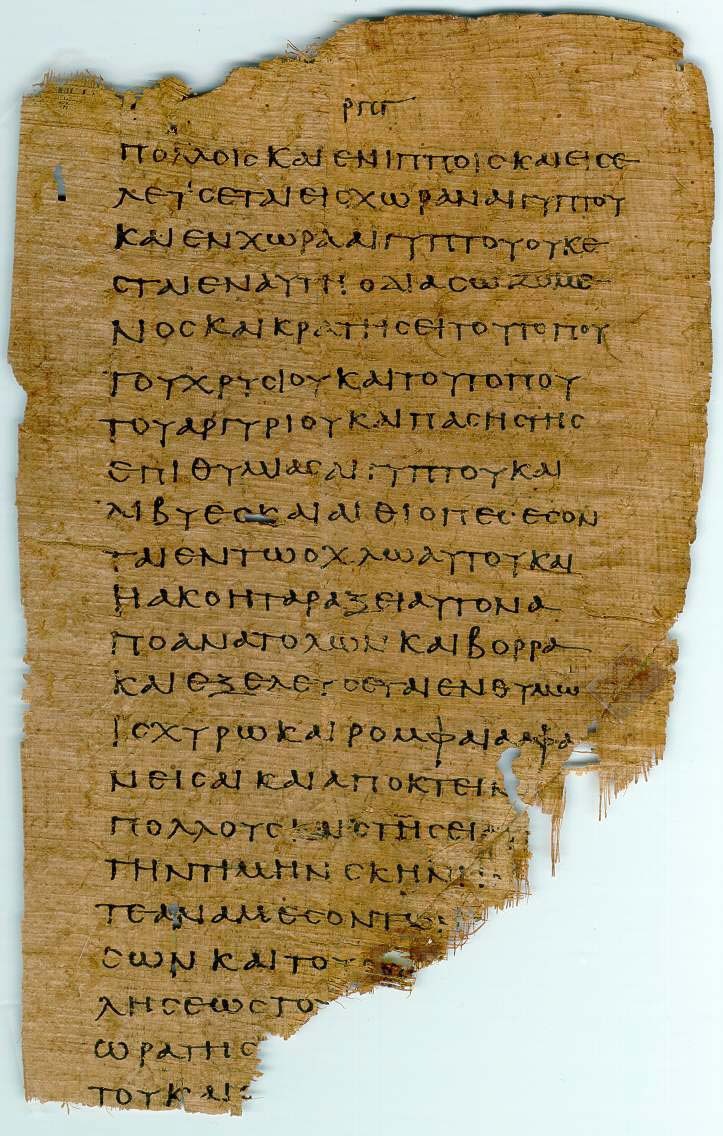 ΡΠΓ
ΠΟΛΛΟΙϹΚΑΙΕΝΙΠΠΟΙϹΚΑΙΕΙϹΕ
ΛΕΥϹΕΤΑΙΕΙϹΧΩΡΑΝΑΙΓΥΠΤΟΥ
ΚΑΙΕΝΧΩΡΑΑΙΓΥΠΤΟΥΟΥΚΕ
ϹΤΑΙΕΝΑΥΤΗΟΔΙΑϹΩΖΟΜΕ
ΝΟϹΚΑΙΚΡΑΤΗϹΕΙΤΟΥΤΟΠΟΥ
ΤΟΥΧΡΥϹΙΟΥΚΑΙΤΟΥΤΟΠΟΥ
ΤΟΥΑΡΓΥΡΙΟΥΚΑΙΠΑϹΗϹΤΗϹ
ΕΠΙΘΥΜΙΑϹΑΙΓΥΠΤΟΥΚΑΙ
ΛΙΒΥΕϹΚΑΙΑΙΘΙΟΠΕϹΕϹΟΝ
ΤΑΙΕΝΤΩΟΧΛΩΑΥΤΟΥΚΑΙ
ΗΑΚΟΗΤΑΡΑΞΕΙΑΥΤΟΝΑ
ΠΟΑΝΑΤΟΛΩΝΚΑΙΒΟΡΡΑ
ΚΑΙΕΞΕΛΕΥϹΕΤΑΙΕΝΘΥΜΩ
ΙϹΧΥΡΩΚΑΙΡΟΜΦΑΙΑΑΦΑ
ΝΕΙϹΑΙΚΑΙΑΠΟΚΤΕΙΝ
ΠΟΛΛΟΥϹΚΑΙϹΤΗϹΕΙ
ΤΗΝΤΙΜΗΝϹΚΗΝ
ΤΕΑΝΑΜΕϹΟΝΤΩ
ϹΩΝΚΑΙΤΟΥ
ΛΗϹΕΩϹΤΟΥ
ΩΡΑΤΗϹ
ΤΟΥΚΑΙ